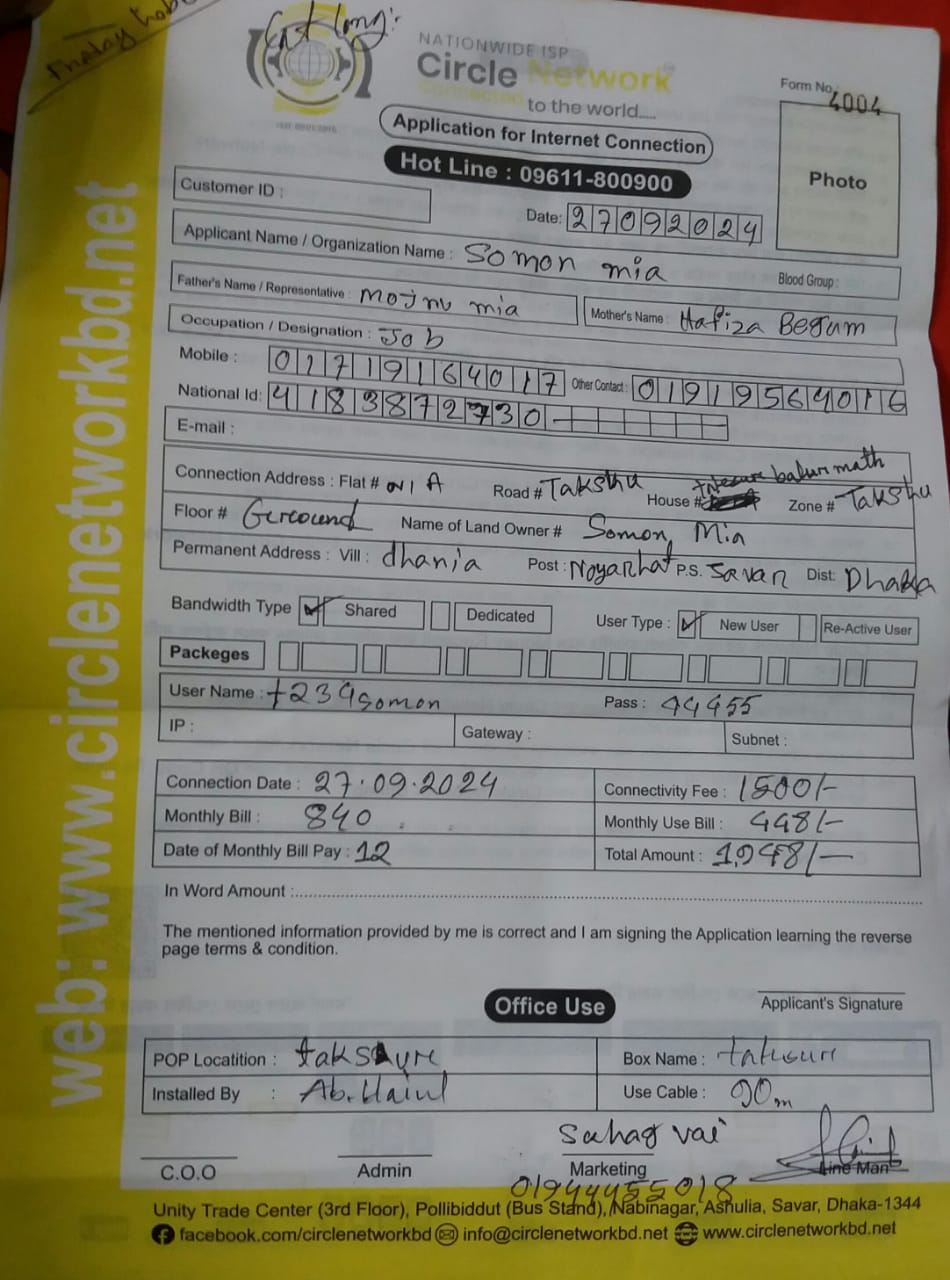 Friday
Cat long:
NATIONWIDE ISP
Circle Network
Connected to the world.....
Form No. 4004
Application for Internet Connection
Hot Line : 09611-800900
Photo
Customer ID :
Date: 27092024
Applicant Name / Organization Name : Somon mia
Blood Group :
Father's Name / Representative : mojnu mia Mother's Name : Hafiza Begum
Occupation / Designation : Job
Mobile : 01719164017 Other Contact : 01919564016
National Id: 4183872730
E-mail :
Connection Address : Flat # N/A Road # Takshu House # balurmath Zone # Takshu
Floor # Gercound Name of Land Owner # Somon Mia
Permanent Address : Vill : dhania Post : Noyarhat P.S. Savar Dist: Dhaka
Bandwidth Type Shared Dedicated User Type : New User Re-Active User
Packeges
User Name : t234somon Pass : 44455
IP : Gateway : Subnet :
Connection Date : 27.09.2024 Connectivity Fee : 1500/-
Monthly Bill : 840 Monthly Use Bill : 448/-
Date of Monthly Bill Pay : 12 Total Amount : 1,948/-
In Word Amount :
The mentioned information provided by me is correct and I am signing the Application learning the reverse
page terms & condition.
Applicant's Signature
Office Use
POP Locatition : taksure Box Name : taksure
Installed By : Ab. Use Cable : 90m
Sahag vai
C.O.O Admin Marketing Line Man
01944455018
Unity Trade Center (3rd Floor), Pollibiddut (Bus Stand), Nabinagar, Ashulia, Savar, Dhaka-1344
facebook.com/circlenetworkbd info@circlenetworkbd.net www.circlenetworkbd.net
web: www.circlenetworkbd.net